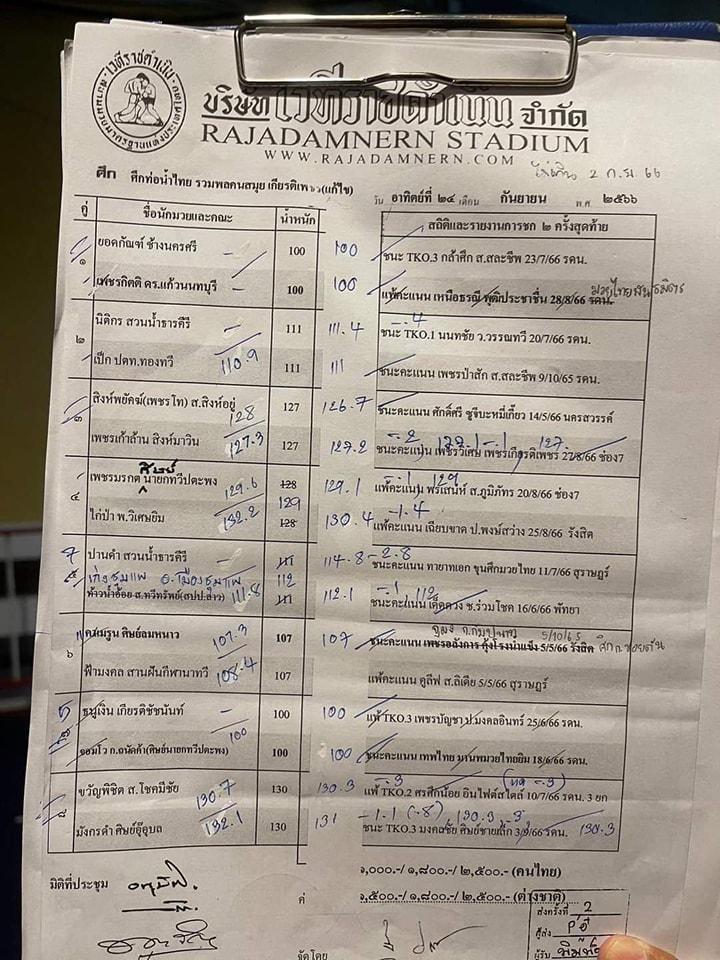 บริษัท เวทีราชดำเนิน จำกัด
RAJADAMNERN STADIUM
WWW.RAJADAMNERN.COM
2 ก.ย 66
ศึก ศึกท่อน้ำไทย รวมพลคนสมุย เกียรติเพชร(แก้ไข) วัน อาทิตย์ที่ ๒๔ เดือน กันยายน พ.ศ ๒๕๖๖
คู่ ชื่อนักมวยและคณะ น้ำหนัก สถิติและรายงานการชก ๒ ครั้งสุดท้าย
๑ ยอดกัณฑ์ ช้างนครศรี – 100 100 ชนะ TKO.3 กล้าศึก ส.สละชีพ 23/7/66 รดน.
เพชรกิตติ ดร.แก้วนนทบุรี – 100 100 แพ้คะแนน เหนือธรณี ฟุติประชาชื่น 28/8/66 รดน.
๒ นิติกร สวนน้ำธารคีรี – 111 111.4 ชนะ TKO.1 นนทชัย ว.วรรณทวี 20/7/66 รดน.
เป็ก ปตท.ทองทวี 110.9 111 111 ชนะคะแนน เพชรป่าสัก ส.สละชีพ 9/10/65 รดน.
๓ สิงห์พยัคฆ์(เพชรโท) ส.สิงห์อยู่ 128 127 126.7 ชนะคะแนน ศักดิ์ศรี ชูจีบะหมี่เกี๊ยว 14/5/66 นครสวรรค์
เพชรเก้าล้าน สิงห์มาวิน 127.3 127 127.2 ชนะคะแนน เพชรวิเศษ เพชรเกียรติเพชร 27/8/66 ช่อง7
๔ เพชรมรกต ศิษย์นายกทวีปตะพง 129.6 128 129 129.1 แพ้คะแนน พรเสน่ห์ ส.ภูมิภัทร 20/8/66 ช่อง7
ไก่ป่า พ.วิเศษยิม 132.2 128 130.4 แพ้คะแนน เฉียบขาด ป.พงษ์สว่าง 25/8/66 รังสิต
๕ ปานดำ สวนน้ำธารคีรี – 111 114.8 -2.8 ชนะคะแนน ทายาทเอก ขุนศึกมวยไทย 11/7/66 สุราษฎร์
เก่งชุมแพ อ.เมืองชุมแพ 112
ท้าวน้ำอ้อย ส.ทวีทรัพย์(สปป.ลาว) 111.8 111 112.1 ชนะคะแนน เด็ดดวง ช.ร่วมโชค 16/6/66 พัทยา
๖ คาเมรูน ศิษย์ลมหนาว 107.3 107 107 ชนะคะแนน เพชรอลังการ กุ้งโรงน้ำแข็ง 5/5/66 รังสิต
5/10/65
ฟ้ามงคล สานฝันกีฬานาทวี 108.4 107 แพ้คะแนน อูลีฟ ส.ลิเดีย 5/5/66 สุราษฎร์
ธนูเงิน เกียรติชัชนันท์ – 100 100 แพ้ TKO.3 เพชรบัญชา ป.มงคลอินทร์ 25/6/66 รดน.
จอมโว ก.ถนัดค้า(ศิษย์นายกทวีปตะพง) 100 100 100 ชนะคะแนน เทพไทย มหนพมวยไทยยิม 18/6/66 รดน.
๘ ขวัญพิชิต ส.โชคมีชัย 130.7 130 130.3 แพ้ TKO.2 ศรศึกน้อย อินไฟต์สไตล์ 10/7/66 รดน. 3 ยก
มังกรดำ ศิษย์อุ๊อุบล 132.1 130 131 -1.1 (-.8) 130.3 -.3
ชนะ TKO.3 มงคลชัย ศิษย์ชายเล็ก 3/9/66 รดน. 130.3
มิติที่ประชุม ๑,๐๐๐.-/ ๑,๘๐๐.-/ ๒,๕๐๐.- (คนไทย)
ค่ ๑,๕๐๐.-/ ๑,๘๐๐.-/ ๒,๕๐๐.- (ต่างชาติ)
ส่งครั้งที่ 2
ผู้ส่ง
จัดโดย
ผู้รับ